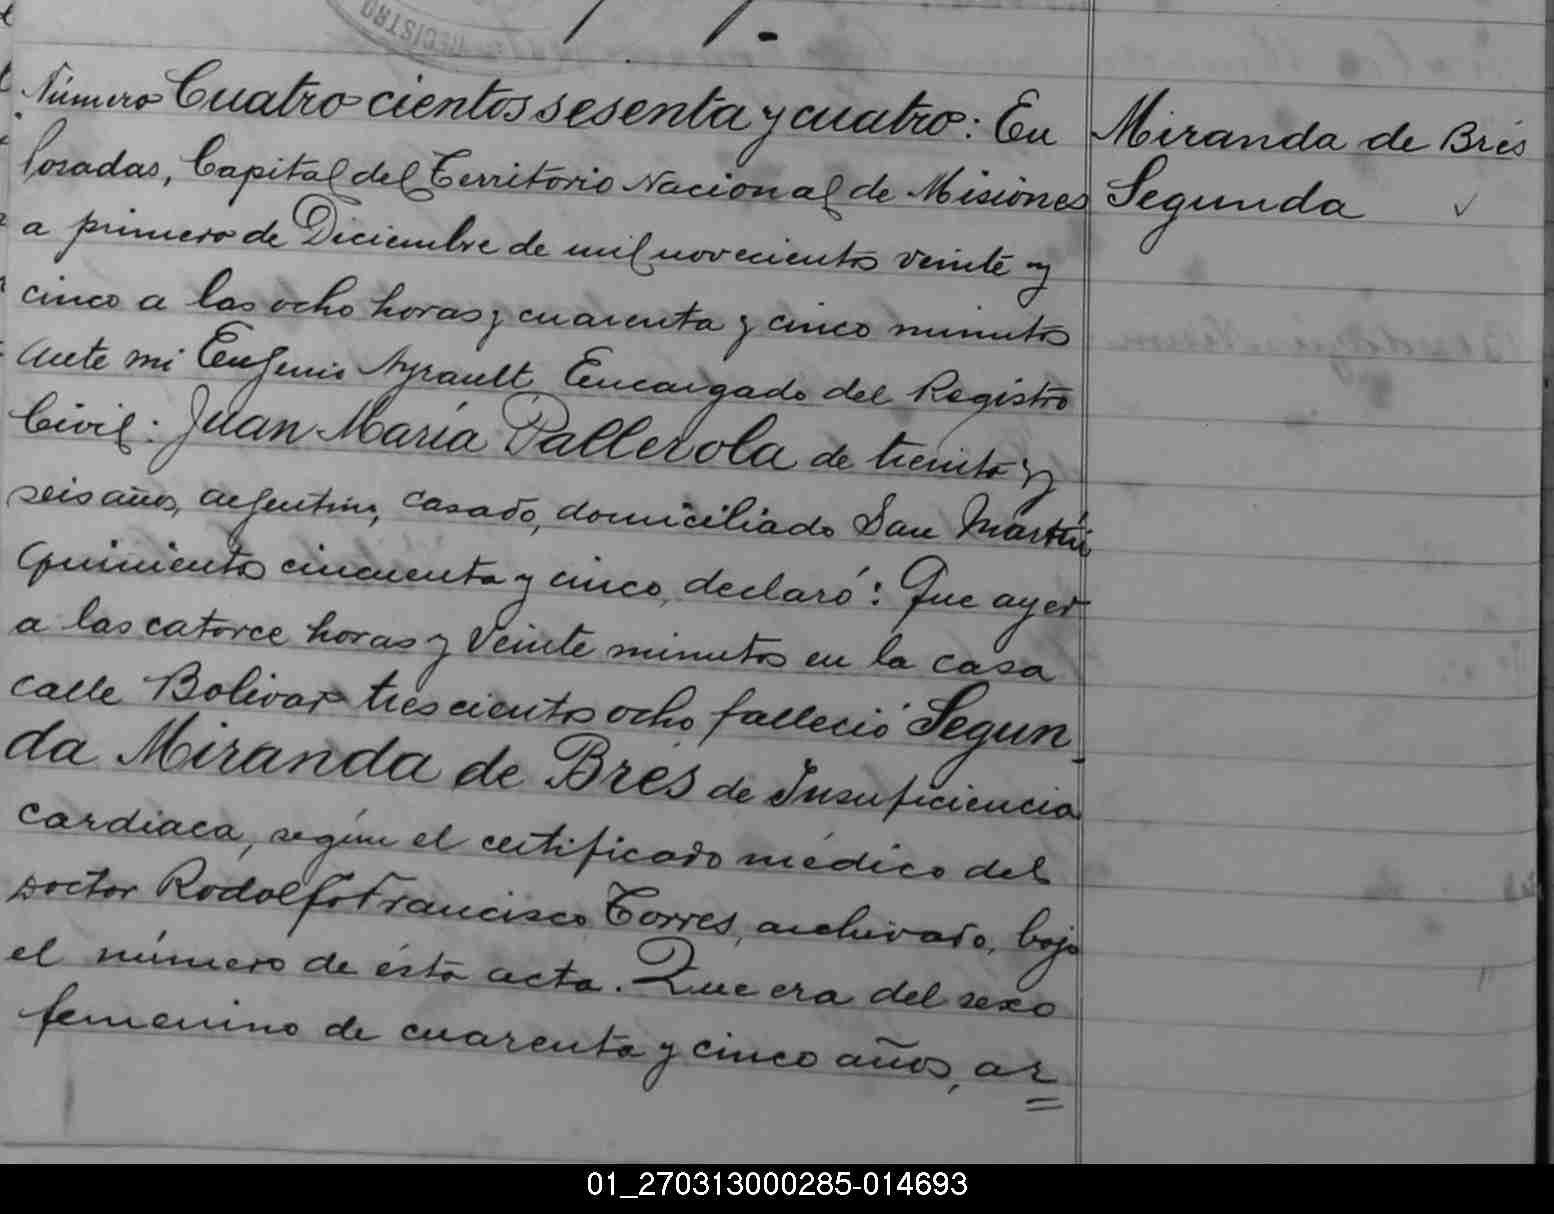 REGISTRO
Número Cuatrocientos sesenta y cuatro: En
Posadas, Capital del Territorio Nacional de Misiones
a primero de Diciembre de mil novecientos veinte y
cinco a las ocho horas y cuarenta y cinco minutos
Ante mi Eugenio Ayrault, Encargado del Registro
Civil: Juan María Pallerola de treinta y
seis años, argentino, casado, domiciliado San Martín
quinientos cincuenta y cinco, declaró: Que ayer
a las catorce horas y veinte minutos en la casa
calle Bolivar trescientos ocho falleció Segun-
da Miranda de Brés de Insuficiencia
cardiaca, según el certificado médico del
Doctor Rodolfo Francisco Torres, archivado, bajo
el número de ésta acta. Que era del sexo
femenino de cuarenta y cinco años, ar
Miranda de Brés
Segunda ✓
01_270313000285-014693